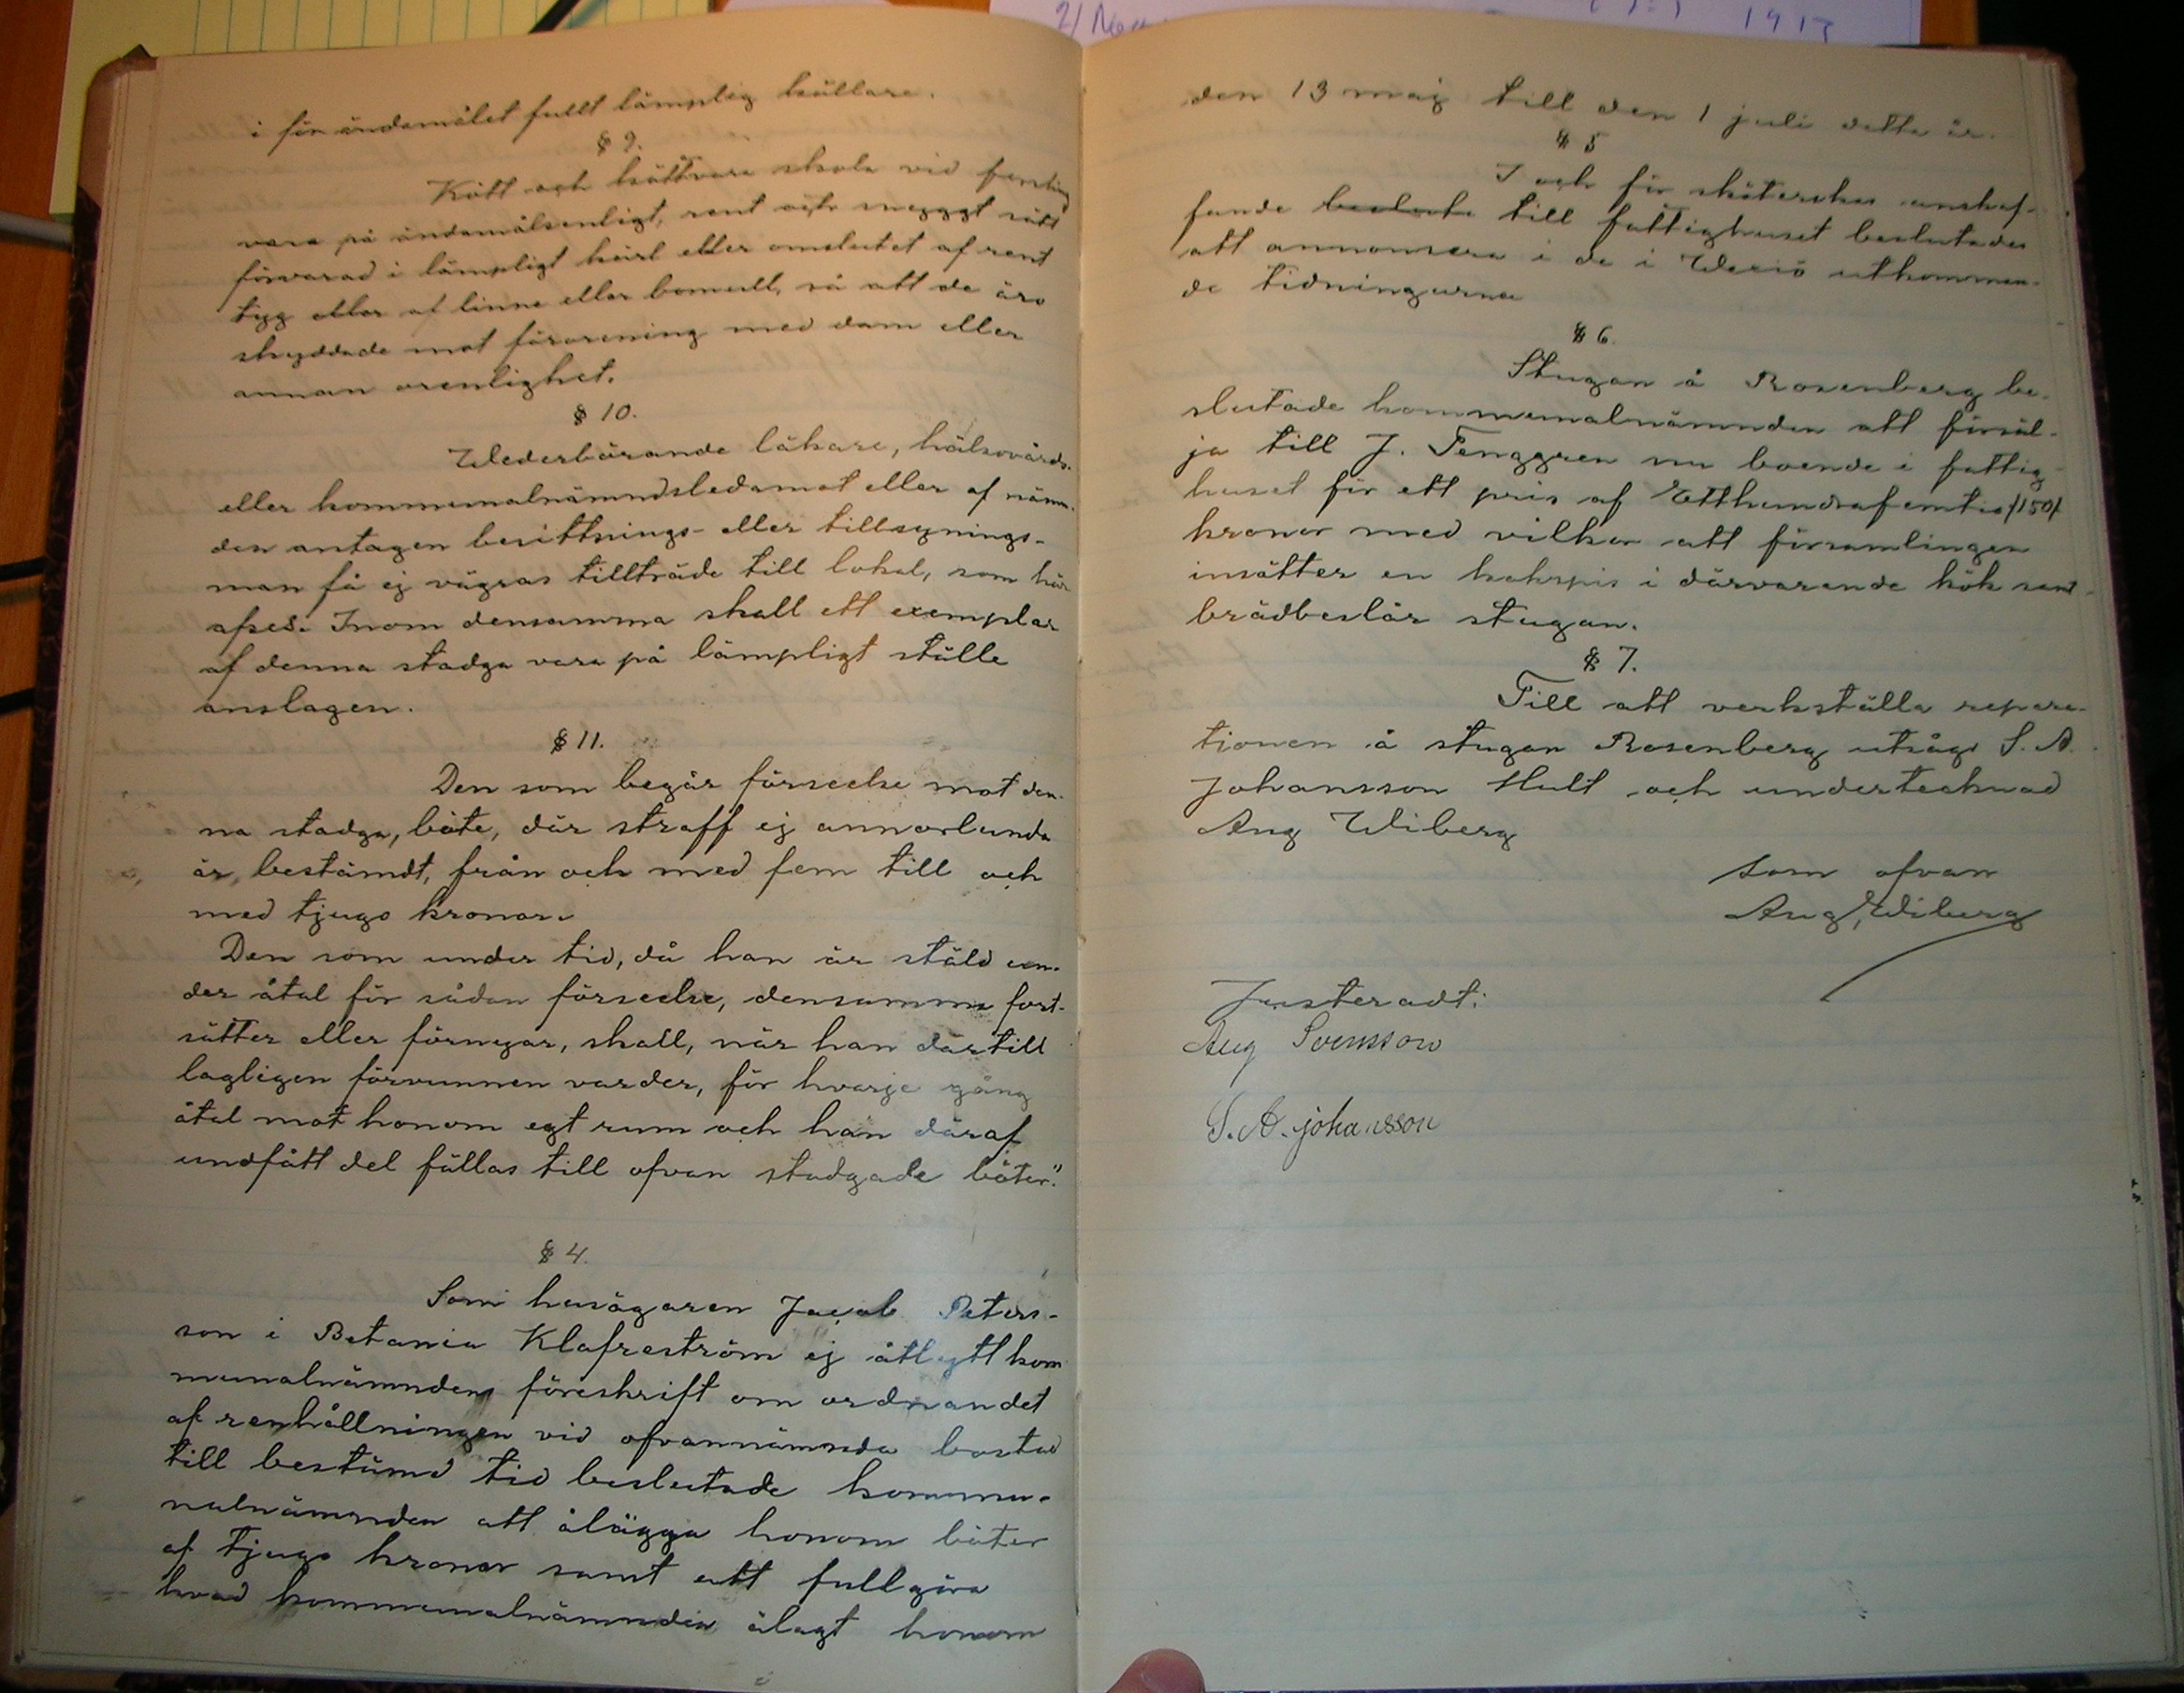 2/
i för ändamålet fullt lämplig källare.
§ 9.
Kött och köttvara skola vid forsling
vara på ändamålsenligt, rent och snyggt sätt
förvarad i lämpligt kärl eller omslutet af rent
tyg eller af linne eller bomull, så att de äro
skyddade mot förorening med dam eller
annan orenlighet.
§ 10.
Wederbörande läkare, hälsovårds-
eller kommunalnämndsledamot eller af nämn-
den antagen besittnings- eller tillsynings-
man få ej vägras tillträde till lokal, som här
afses. Inom densamma skall ett exemplar
af denna stadga vara på lämpligt ställe
anslagen.
§ 11.
Den som begår förseelse mot den-
na stadga, böte, där straff ej annorlunda
är bestämdt, från och med fem till och
med tjugo kronor.
Den som under tid, då han är stäld un-
der åtal för sådan förseelse, densamma fort-
sätter eller förnyar, skall, när han därtill
lagligen förvunnen varder, för hvarje gång
åtal mot honom egt rum och han däraf
undfått del fällas till ofvan stadgade böter."
§ 4.
Som husägaren Jacob Peters-
son i Betania Klafreström ej åtlytt kom
munalnämndens föreskrift om ordnandet
af renhållningen vid ofvannämnda bostad
till bestämd tid beslutade kommu-
nalnämnden att ålägga honom böter
af tjugo kronor samt att fullgöra
hvad kommunalnämnden ålagt honom
den 13 maj till den 1 juli detta år.
§ 5
I och för sköterskas anskaf-
fande till fattighuset beslutades
att annonsera i de i Wexiö utkommen-
de tidningarna
§ 6.
Stugan å Rosenberg be-
slutade kommunalnämnden att försäl-
ja till J. Tenggren nu boende i fattig-
huset för ett pris af Etthundrafemtio/150/
kronor med vilkor att församlingen
insätter en kokspis i därvarande kök samt
brädbeslår stugan.
§ 7.
Till att verkställa repara-
tionen å stugan Rosenberg utsågs S. A.
Johansson Hult och undertecknad
Aug Wiberg
Som ofvan
Aug, Wiberg
Justeradt:
Aug Svensson
S. A. johansson